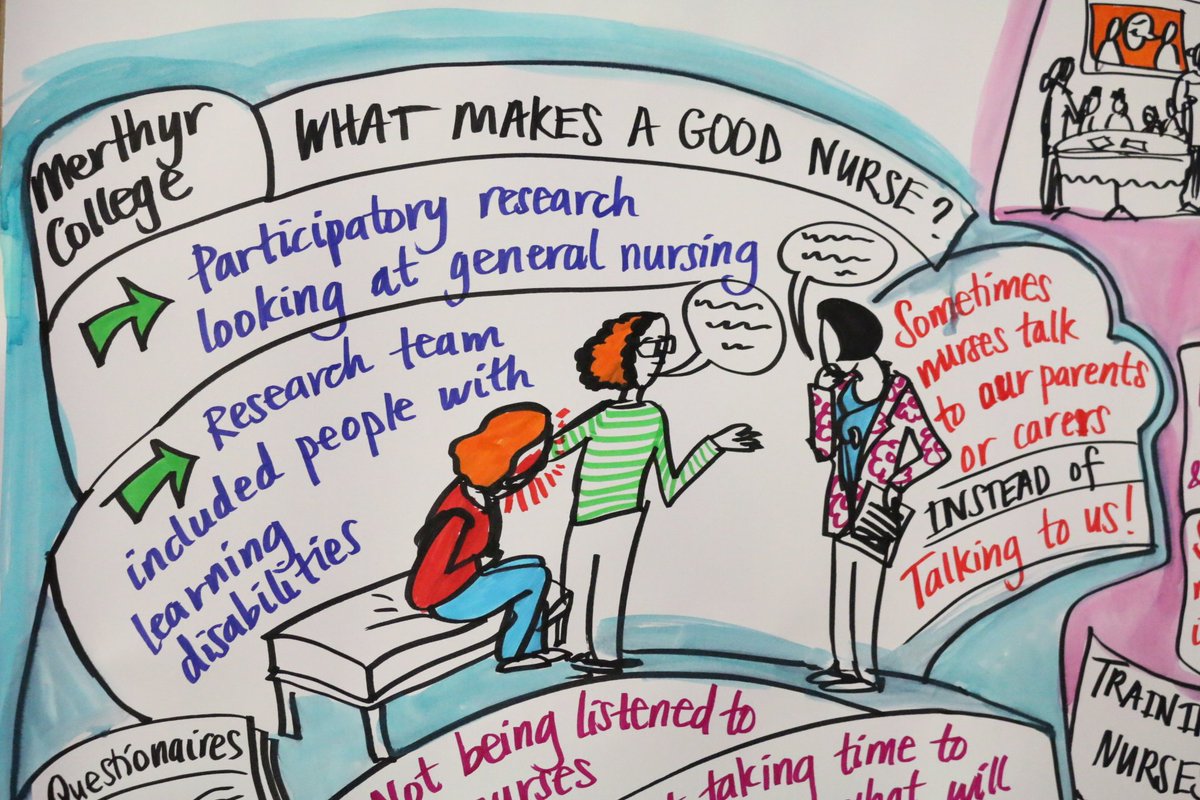 Merthyr
College
WHAT MAKES A GOOD NURSE?
Participatory research
looking at general nursing
Research team
included people with
learning
disabilities
Sometimes
nurses talk
to our parents
or carers
INSTEAD OF
Talking to us!
Questionaires
Not being listened to
taking time to
what will
TRAINI
NURSE